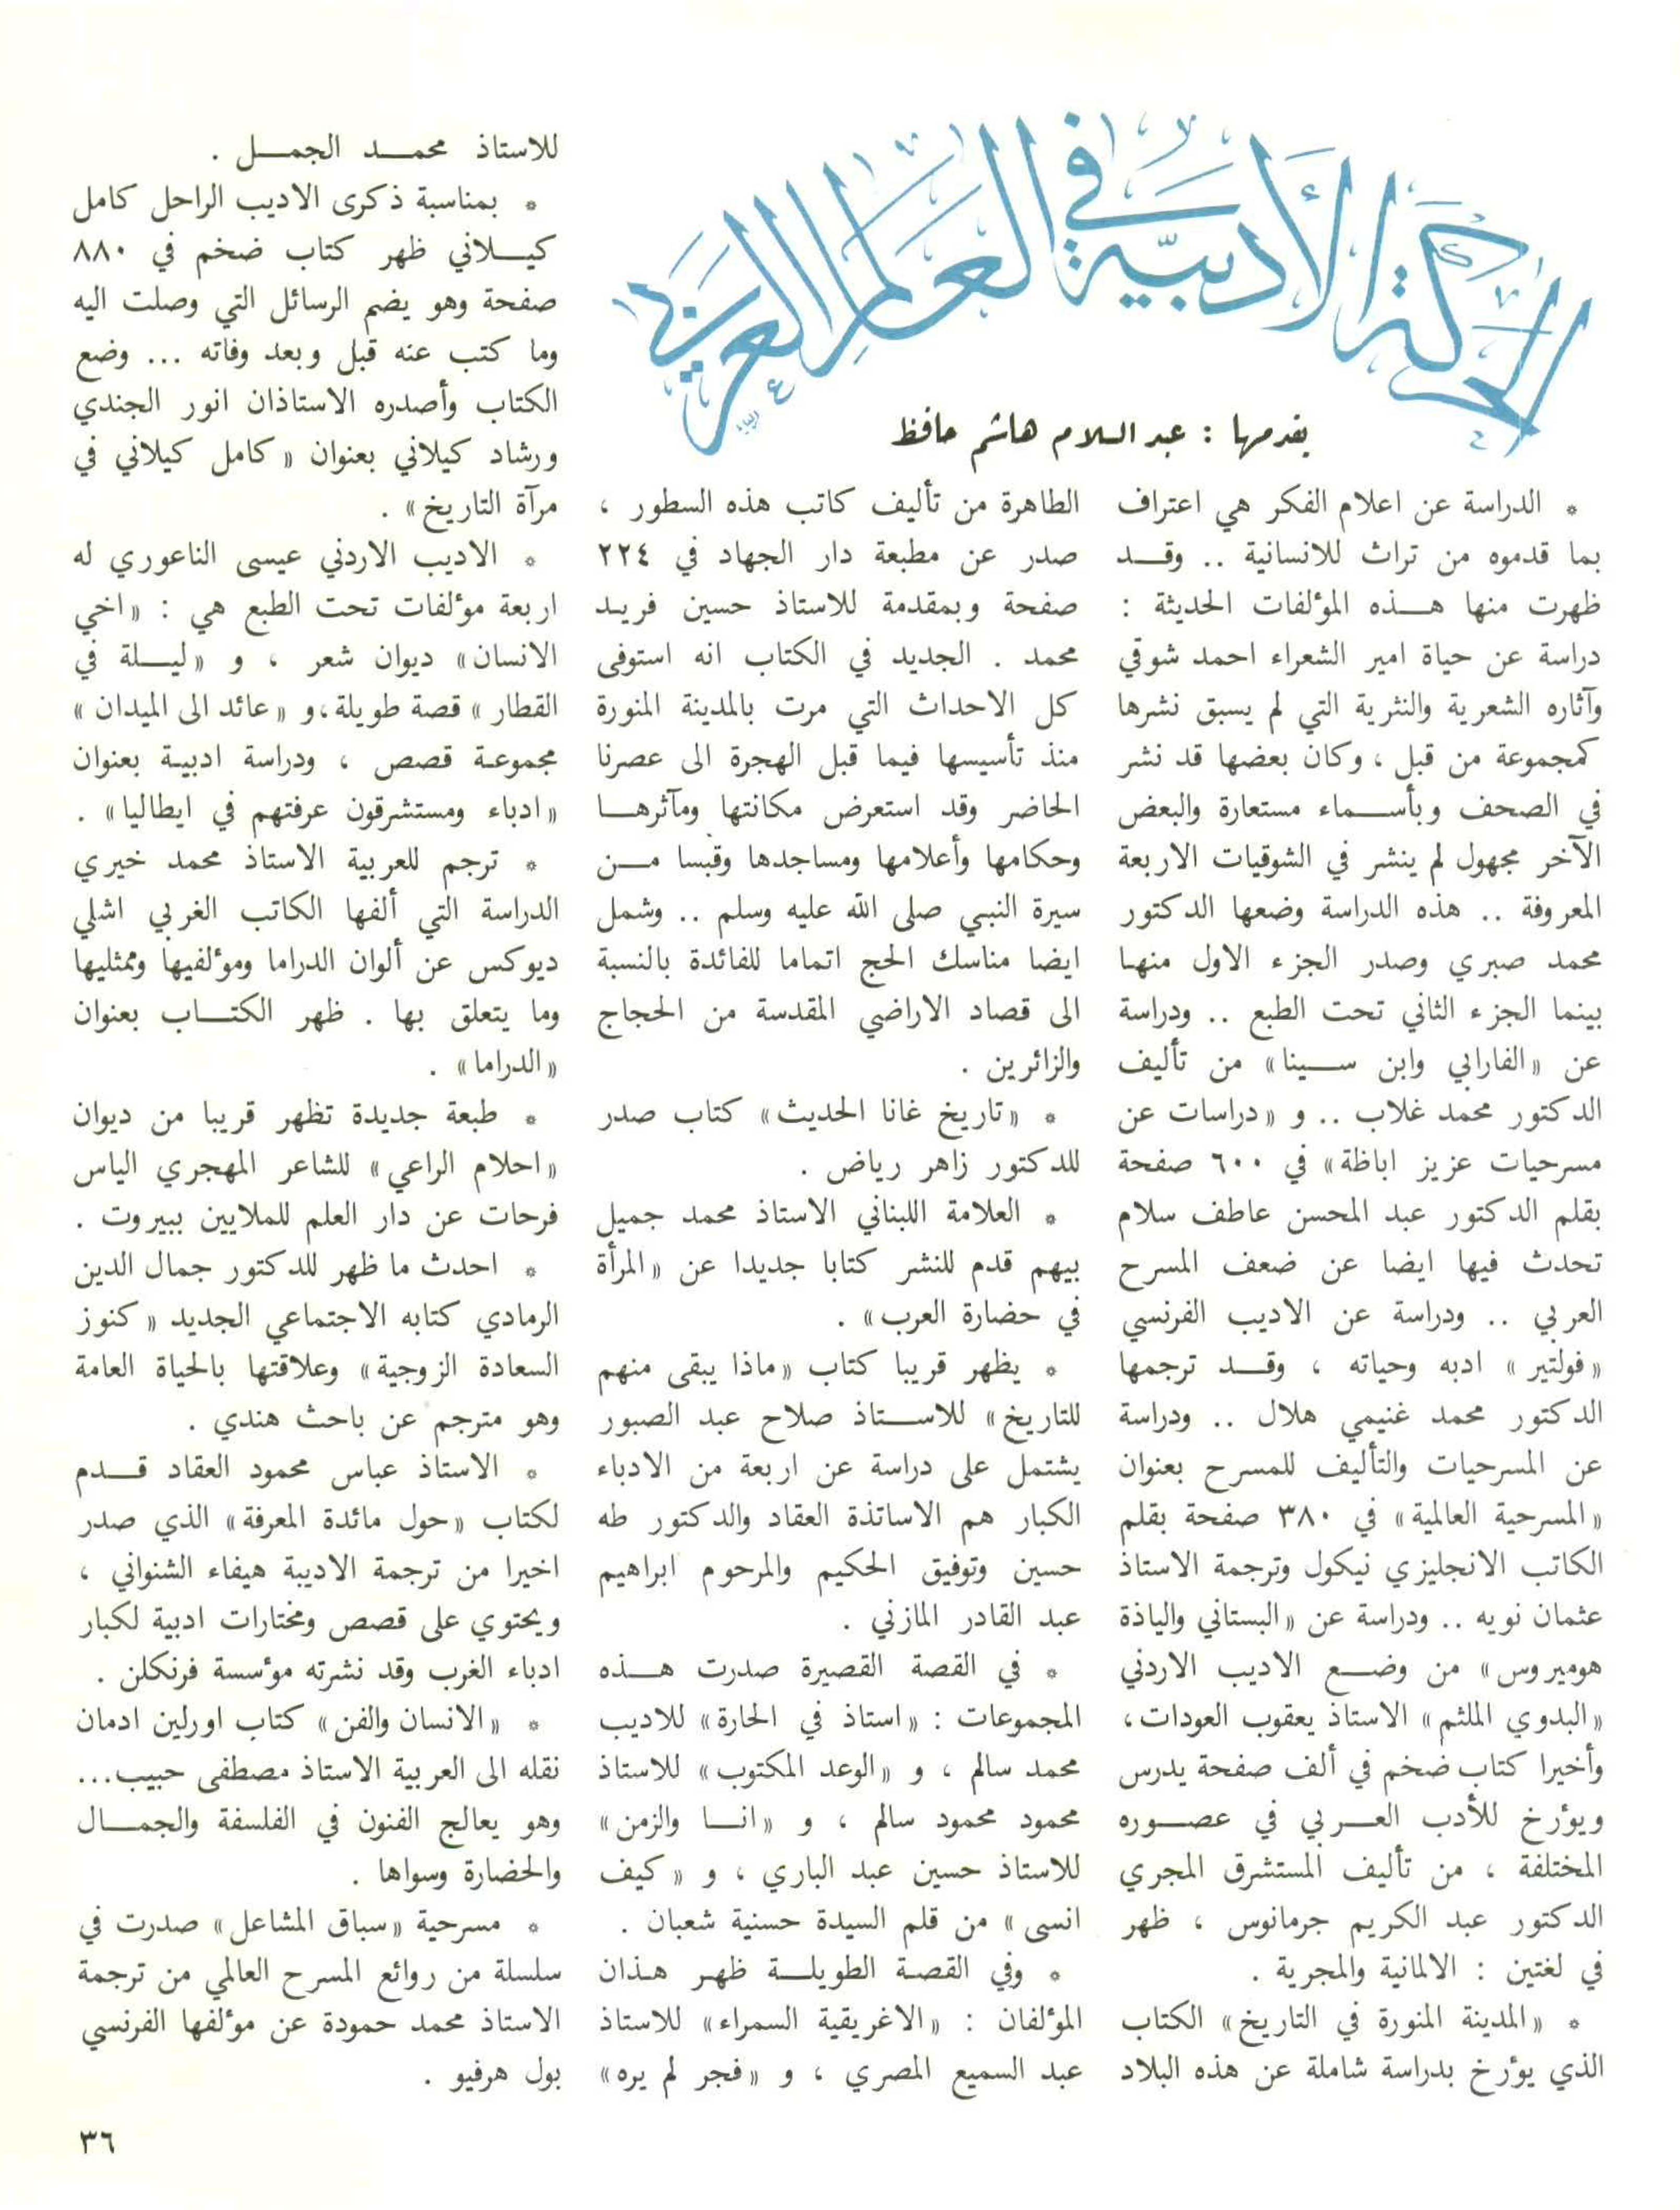 الحركة الأدبية في العالم العربي
يقدمها : عبد السلام هاشم حافظ
* الدراسة عن اعلام الفكر هي اعتراف
بما قدموه من تراث للانسانية .. وقـــد
ظهرت منها هـــذه المؤلفات الحديثة :
دراسة عن حياة امير الشعراء احمد شوقي
وآثاره الشعرية والنثرية التي لم يسبق نشرها
كمجموعة من قبل ، وكان بعضها قد نشر
في الصحف وبأســـماء مستعارة والبعض
الآخر مجهول لم ينشر في الشوقيات الاربعة
المعروفة .. هذه الدراسة وضعها الدكتور
محمد صبري وصدر الجزء الاول منهـا
بينما الجزء الثاني تحت الطبع .. ودراسة
عن «الفارابي وابن ســـينا» من تأليف
الدكتور محمد غلاب .. و «دراسات عن
مسرحيات عزيز اباظة» في ٦٠٠ صفحة
بقلم الدكتور عبد المحسن عاطف سلام
تحدث فيها ايضا عن ضعف المسرح
العربي .. ودراسة عن الاديب الفرنسي
«فولتير» ادبه وحياته ، وقـــد ترجمها
الدكتور محمد غنيمي هلال .. ودراسة
عن المسرحيات والتأليف للمسرح بعنوان
«المسرحية العالمية» في ٣٨٠ صفحة بقلم
الكاتب الانجليزي نيكول وترجمة الاستاذ
عثمان نويه .. ودراسة عن «البستاني والياذة
هوميروس» من وضـــع الاديب الاردني
«البدوي الملثم» الاستاذ يعقوب العودات،
وأخيرا كتاب ضخم في ألف صفحة يدرس
ويؤرخ للأدب العـــربي في عصـــوره
المختلفة ، من تأليف المستشرق المجري
الدكتور عبد الكريم جرمانوس ، ظهر
في لغتين : الالمانية والمجرية .
* «المدينة المنورة في التاريخ» الكتاب
الذي يؤرخ بدراسة شاملة عن هذه البلاد
الطاهرة من تأليف كاتب هذه السطور ،
صدر عن مطبعة دار الجهاد في ٢٢٤
صفحة وبمقدمة للاستاذ حسين فريـد
محمد . الجديد في الكتاب انه استوفى
كل الاحداث التي مرت بالمدينة المنورة
منذ تأسيسها فيما قبل الهجرة الى عصرنا
الحاضر وقد استعرض مكانتها ومآثرهـــا
وحكامها وأعلامها ومساجدها وقبسا مـــن
سيرة النبي صلى الله عليه وسلم .. وشمل
ايضا مناسك الحج اتماما للفائدة بالنسبة
الى قصاد الاراضي المقدسة من الحجاج
والزائرين .
* «تاريخ غانا الحديث» كتاب صدر
للدكتور زاهر رياض .
* العلامة اللبناني الاستاذ محمد جميل
بيهم قدم للنشر كتابا جديدا عن «المرأة
في حضارة العرب» .
* يظهر قريبا كتاب «ماذا يبقى منهم
للتاريخ» للاســـتاذ صلاح عبد الصبور
يشتمل على دراسة عن اربعة من الادباء
الكبار هم الاساتذة العقاد والدكتور طه
حسين وتوفيق الحكيم والمرحوم ابراهيم
عبد القادر المازني .
* في القصة القصيرة صدرت هـــذه
المجموعات : «استاذ في الحارة» للاديب
محمد سالم ، و «الوعد المكتوب» للاستاذ
محمود محمود سالم ، و «انـــا والزمن»
للاستاذ حسين عبد الباري ، و «كيف
انسى» من قلم السيدة حسنية شعبان .
* وفي القصة الطويلـــة ظهـر هـذان
المؤلفان : «الاغريقية السمراء» للاستاذ
عبد السميع المصري ، و «فجر لم يره»
للاستاذ محمـــد الجمـــل .
* بمناسبة ذكرى الاديب الراحل كامل
كيـــلاني ظهر كتاب ضخم في ٨٨٠
صفحة وهو يضم الرسائل التي وصلت اليه
وما كتب عنه قبل وبعد وفاته ... وضع
الكتاب وأصدره الاستاذان انور الجندي
ورشاد كيلاني بعنوان «كامل كيلاني في
مرآة التاريخ» .
* الاديب الاردني عيسى الناعوري له
اربعة مؤلفات تحت الطبع هي : «اخي
الانسان» ديوان شعر ، و «ليـــلة في
القطار» قصة طويلة،و «عائد الى الميدان»
مجموعة قصص ، ودراسة ادبية بعنوان
«ادباء ومستشرقون عرفتهم في ايطاليا» .
* ترجم للعربية الاستاذ محمد خيري
الدراسة التي ألفها الكاتب الغربي اشلي
ديوكس عن ألوان الدراما ومؤلفيها وممثليها
وما يتعلق بها . ظهر الكتـــاب بعنوان
«الدراما» .
* طبعة جديدة تظهر قريبا من ديوان
«احلام الراعي» للشاعر المهجري الياس
فرحات عن دار العلم للملايين ببيروت .
* احدث ما ظهر للدكتور جمال الدين
الرمادي كتابه الاجتماعي الجديد «كنوز
السعادة الزوجية» وعلاقتها بالحياة العامة
وهو مترجم عن باحث هندي .
* الاستاذ عباس محمود العقاد قـــدم
لكتاب «حول مائدة المعرفة» الذي صدر
اخيرا من ترجمة الاديبة هيفاء الشنواني ،
ويحتوي على قصص ومختارات ادبية لكبار
ادباء الغرب وقد نشرته مؤسسة فرنكلن .
* «الانسان والفن» كتاب اورلين ادمان
نقله الى العربية الاستاذ مصطفى حبيب...
وهو يعالج الفنون في الفلسفة والجمـــال
والحضارة وسواها .
* مسرحية «سباق المشاعل» صدرت في
سلسلة من روائع المسرح العالمي من ترجمة
الاستاذ محمد حمودة عن مؤلفها الفرنسي
بول هرفيو .
٣٦